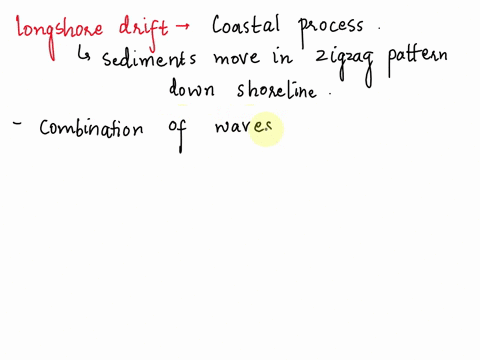 longshore drift → Coastal process.
↳ sediments move in zigzag pattern
down shoreline.
- Combination of waves